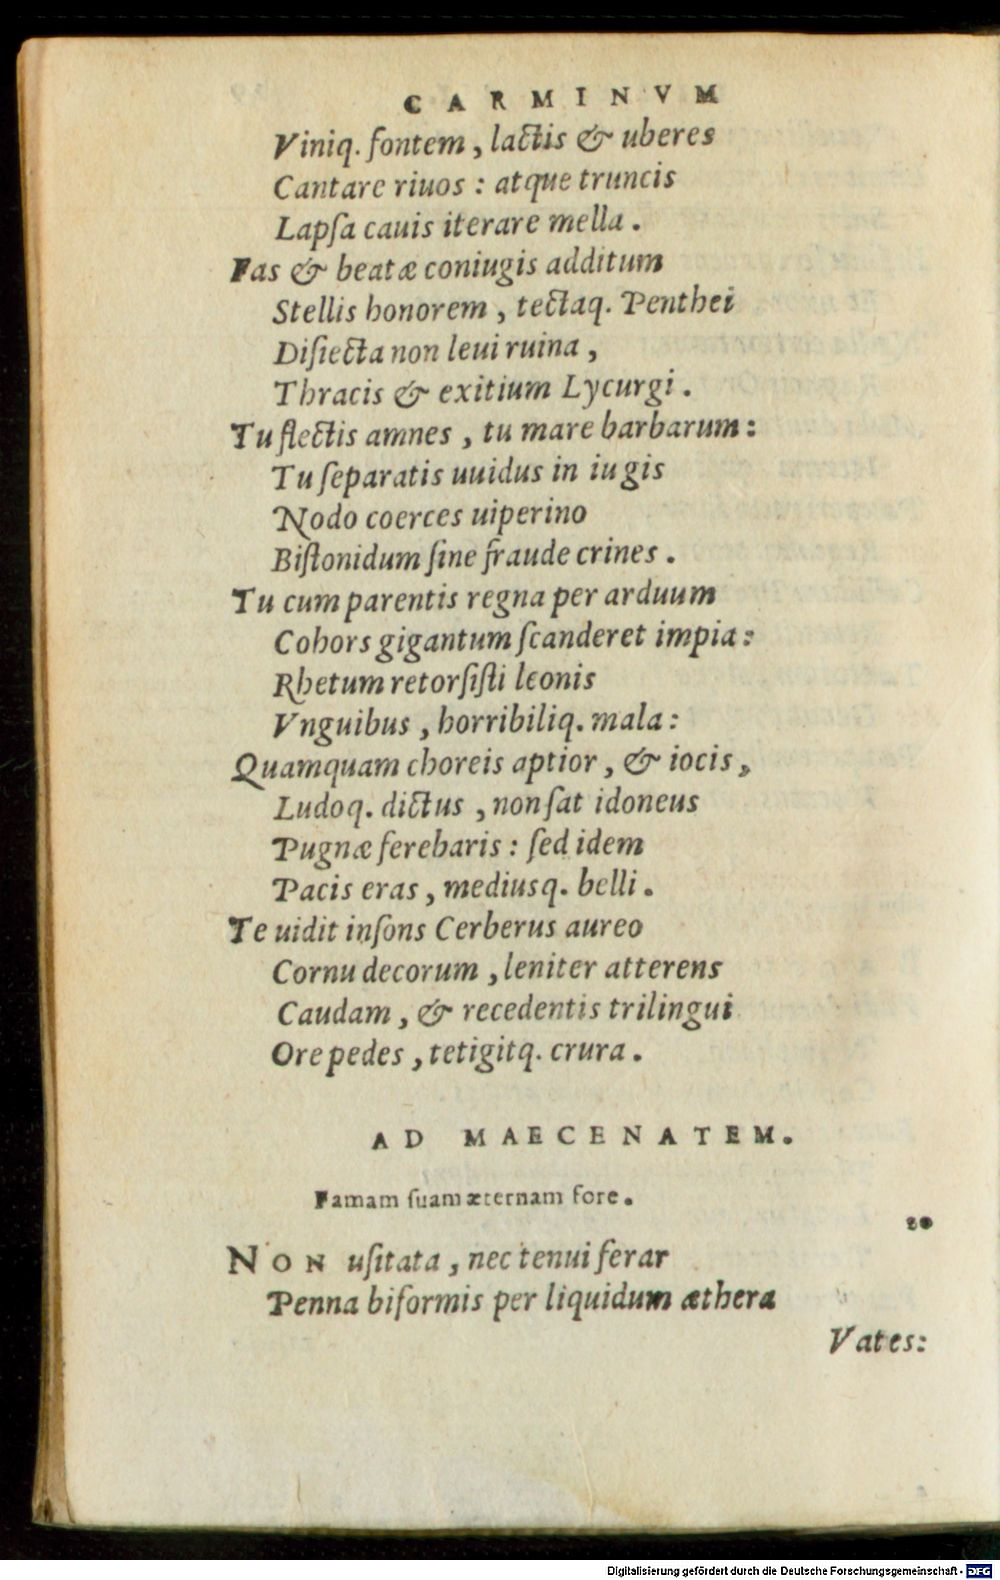 CARMINVM
Viniq. fontem, lactis & uberes
Cantare riuos : atque truncis
Lapſa cauis iterare mella.
Fas & beatæ coniugis additum
Stellis honorem, tectaq. Penthei
Diſiecta non leui ruina,
Thracis & exitium Lycurgi.
Tu flectis amnes, tu mare barbarum:
Tu ſeparatis uuidus in iugis
Nodo coerces uiperino
Biſtonidum ſine fraude crines.
Tu cum parentis regna per arduum
Cohors gigantum ſcanderet impia:
Rhetum retorſiſti leonis
Vnguibus, horribiliq. mala:
Quamquam choreis aptior, & iocis,
Ludoq. dictus, non ſat idoneus
Pugnæ ferebaris : ſed idem
Pacis eras, mediusq. belli.
Te uidit inſons Cerberus aureo
Cornu decorum, leniter atterens
Caudam, & recedentis trilingui
Ore pedes, tetigitq. crura.
AD MAECENATEM.
Famam ſuam æternam fore.
20
NON uſitata, nec tenui ferar
Penna biformis per liquidum æthera
Vates:
Digitalisierung gefördert durch die Deutsche Forschungsgemeinschaft - DFG